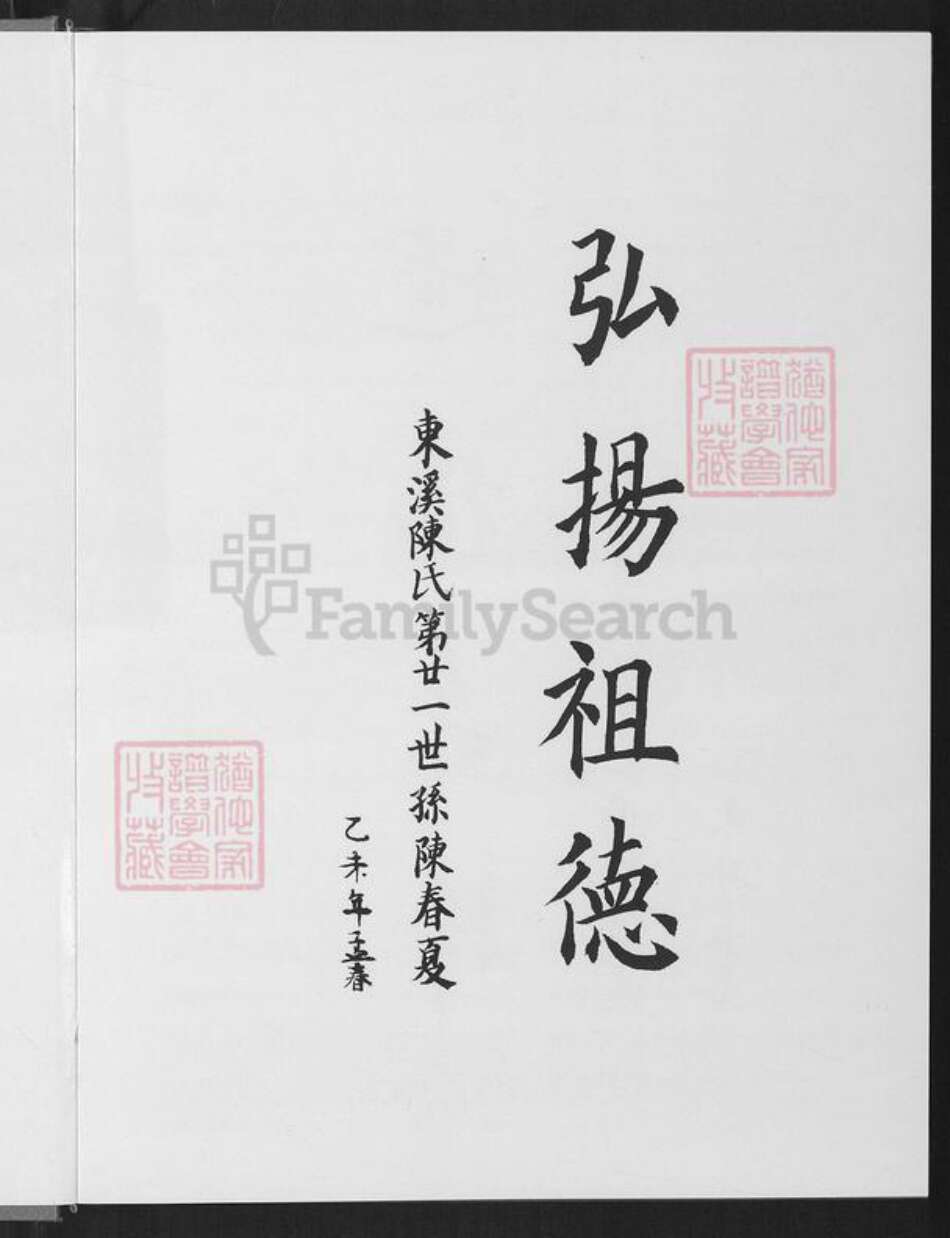 弘揚祖德
猶他家
譜學會
收藏
東溪陳氏第廿一世孫陳春夏
乙未年孟春
FamilySearch
猶他家
譜學會
收藏